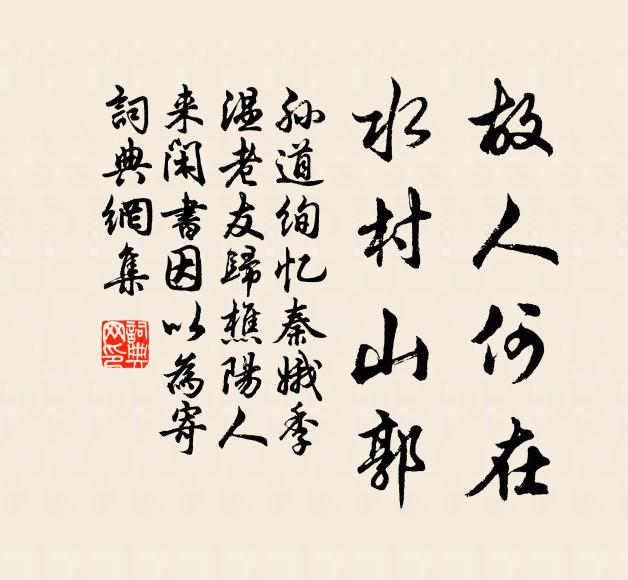 故人何在
水村山郭
孙道绚忆秦娥季
温老友歸樵陽人
来閑書因以為寄
詞典網集
詞典網印